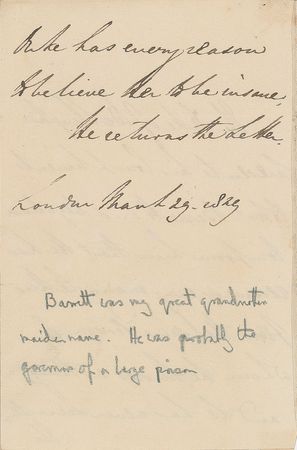 Duke has every reason
to believe her to be insane,
He returns the Letter.
London March 29. 1829
Barrett was my great grandmother
maiden name. He was probably the
governor of a large prison